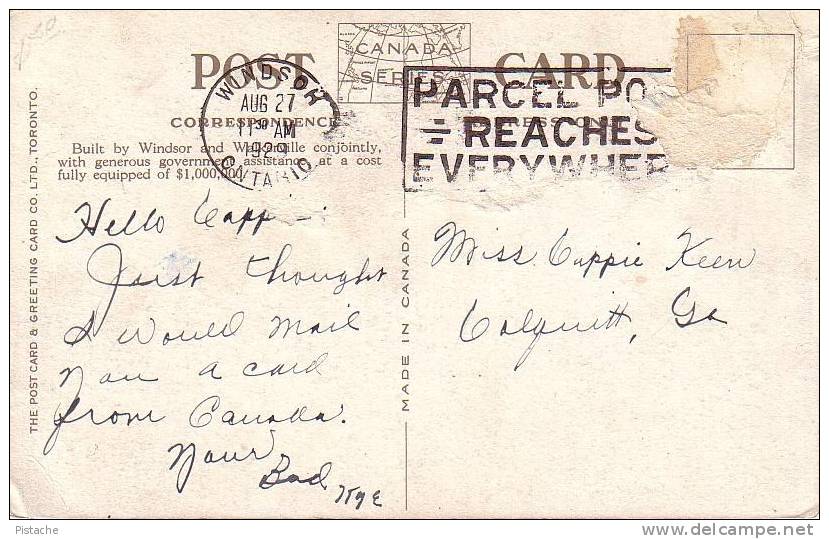 POST CANADA SERIES CARD
WINDSOR
AUG 27
11 30 AM
1929
ONTARIO
PARCEL PO
REACHES
EVERYWHER
CORRESPONDENCE
Built by Windsor and Walkerville conjointly,
with generous government assistance, at a cost
fully equipped of $1,000,000.
Hello Capp
Just thought
I would mail
You a card
from Canada.
Your
Bud
Miss Cappie Keen
Colquitt, Ga
MADE IN CANADA
THE POST CARD & GREETING CARD CO. LTD., TORONTO.
Pistache
www.delcampe.net